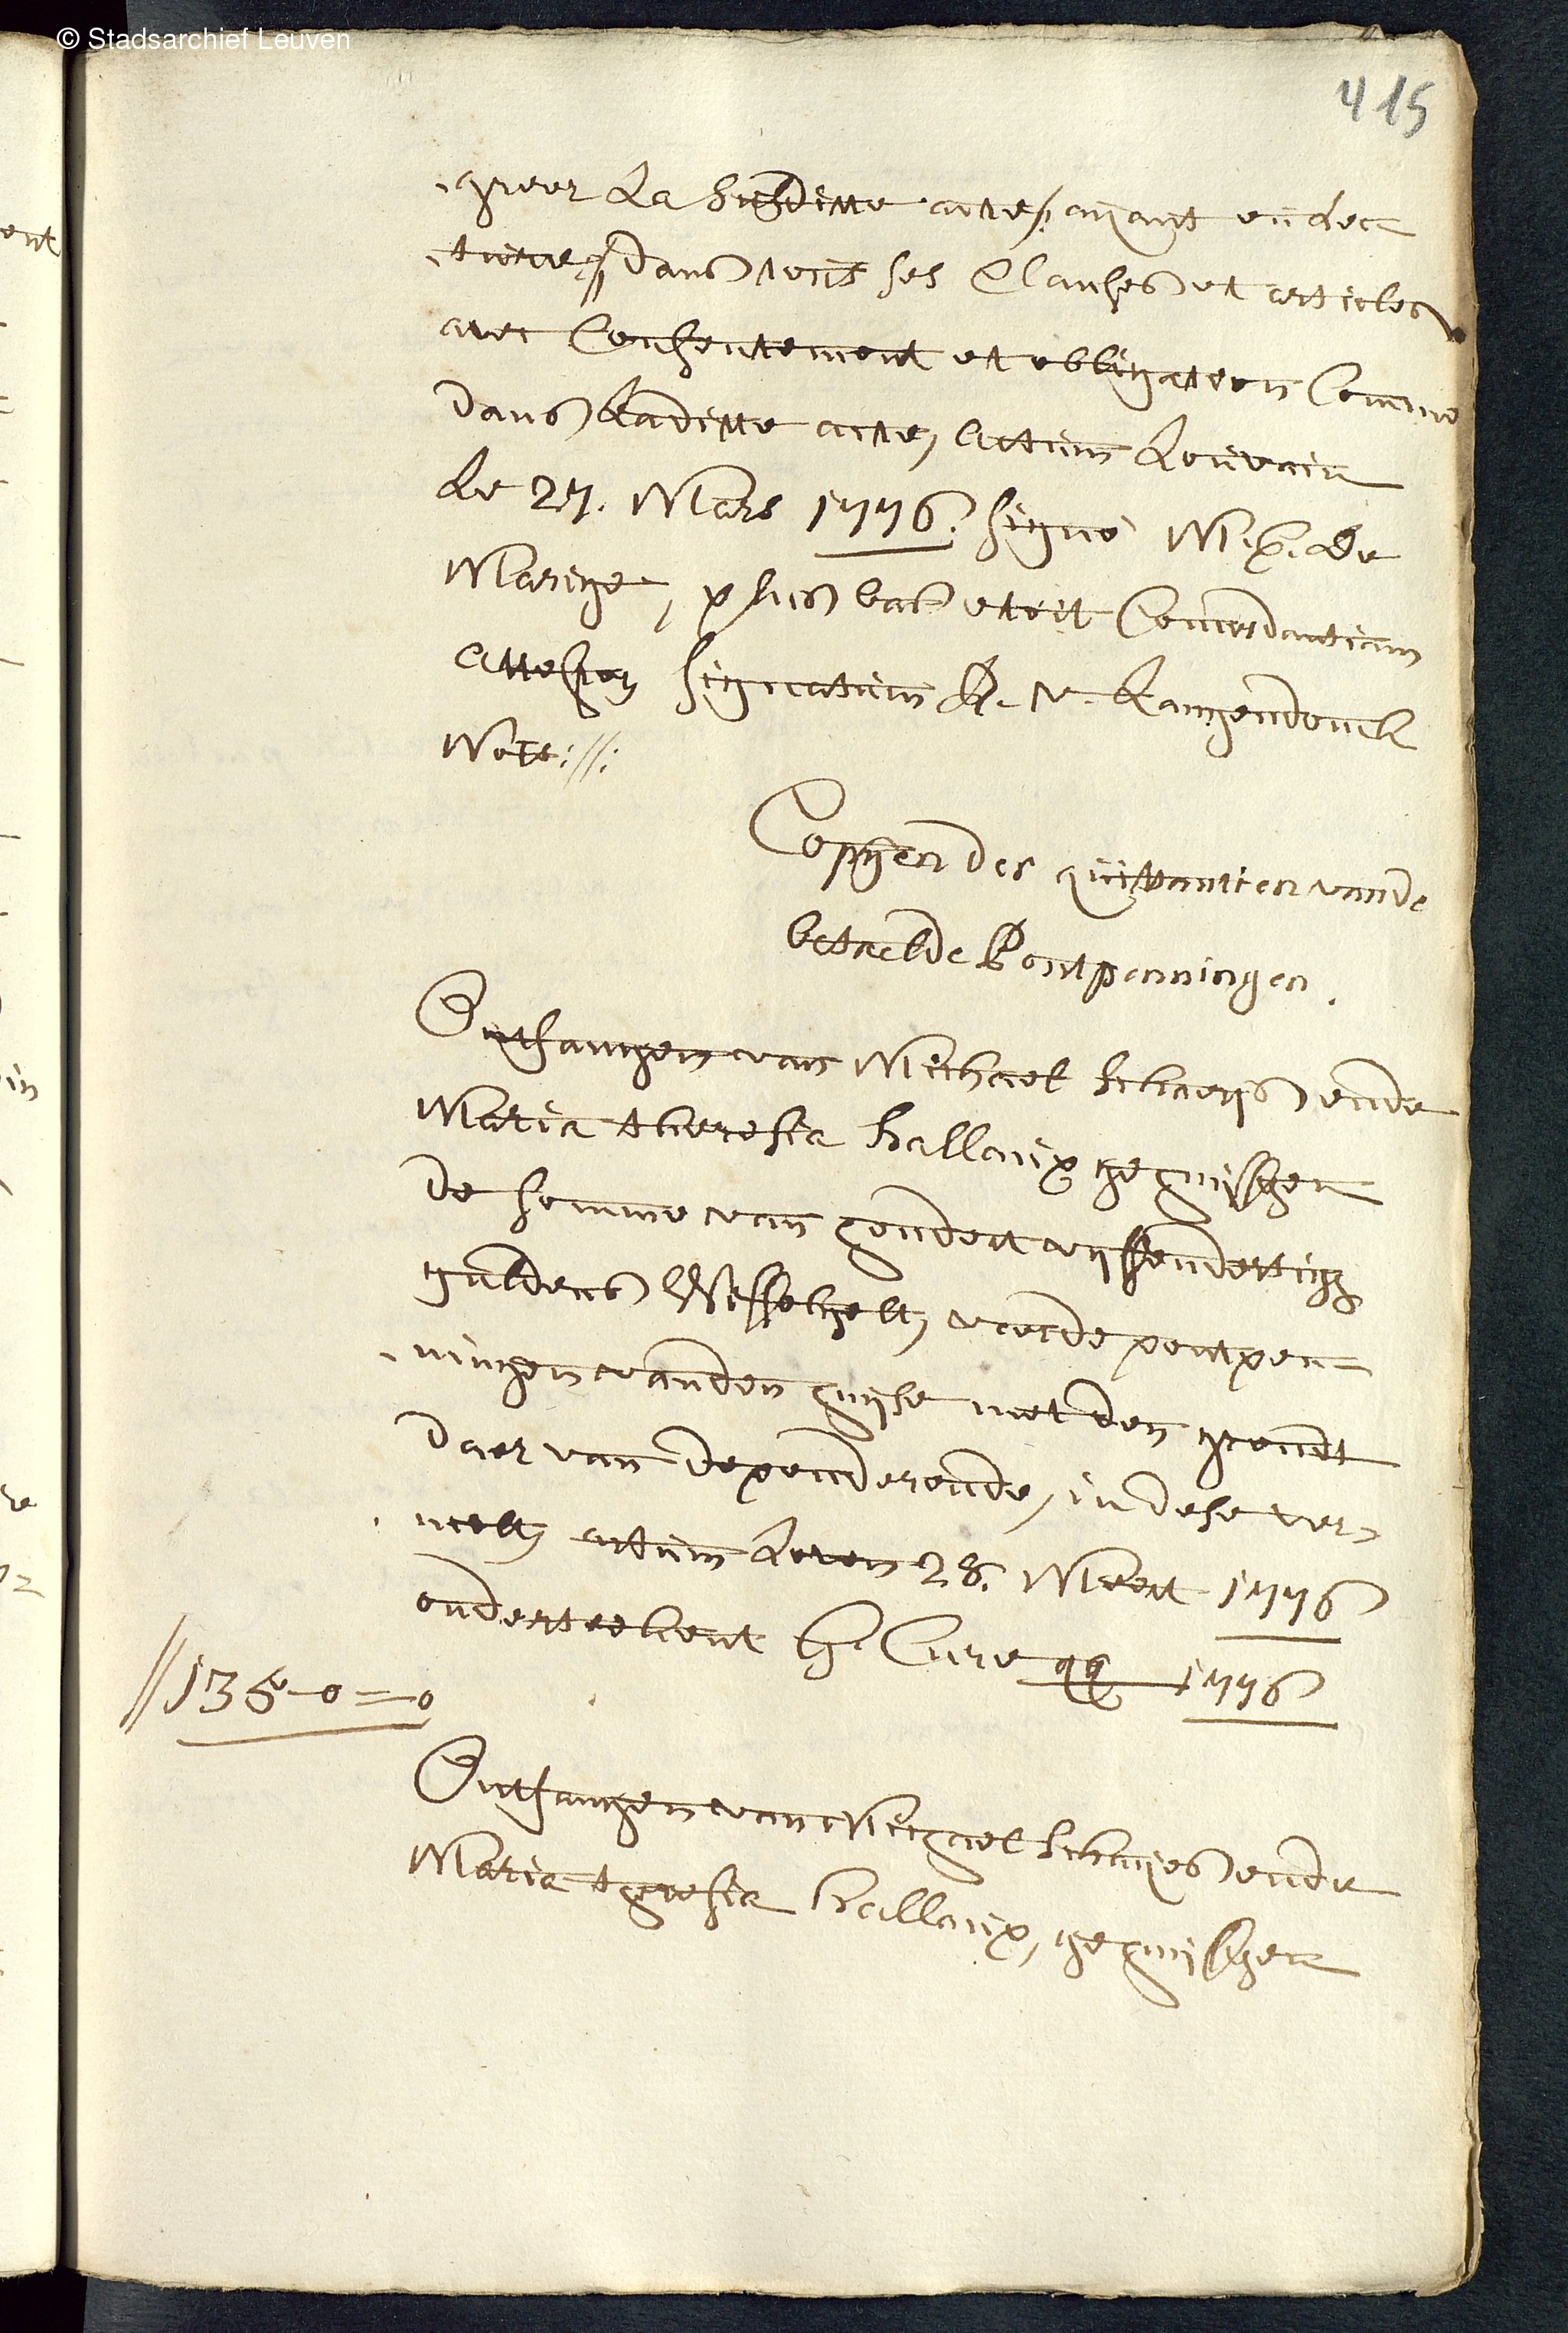 © Stadsarchief Leuven
415
-greer La susditte acte /: ayant eu lec
-ture :/ dans tous ses Clauses et articles
avec Consentement et obligation Comme
dans laditte acte, actum Louvain
Le 27. Mars 1776. signé M. P. De
Marige, plus bas etoit Concordantiam
attestor signatum A. v. Langendonck
Nots://:
Copyen der quittantien vande
betaelde Pontpenningen.
Ontfangen van Michael Schaeys ende
Maria theresia hallaux gehuysschen
de somme van hondert vyffendertigh
guldens Wisselgelt, voor de pontpen-
-ningen van den huyse met den gront
daer van dependerende, in dese ver-
melt, actum Loven 28. Meert 1776
onderteekent H. Cure qq 1776
//135-0=0
Ontfangen van Michael Schaeyes ende
Maria theresia hallaux, gehuysschen